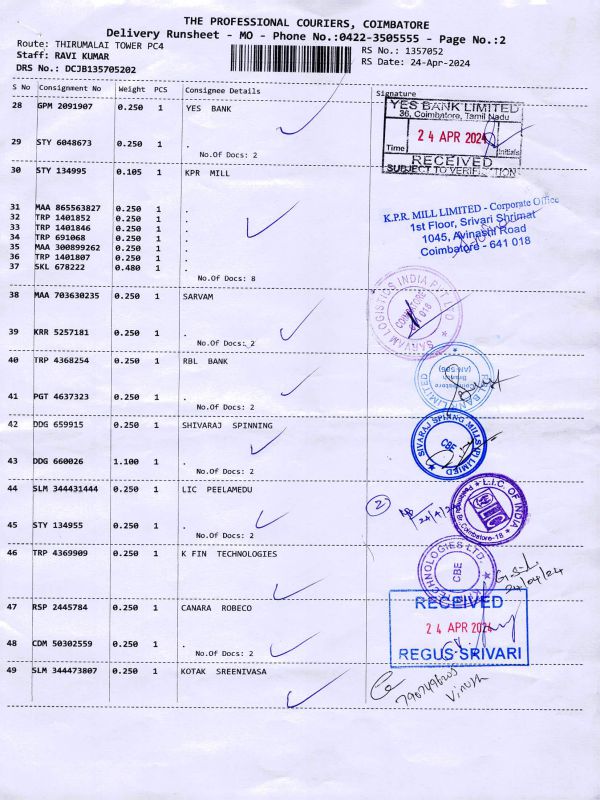 THE PROFESSIONAL COURIERS, COIMBATORE
Delivery Runsheet - MO - Phone No.:0422-3505555 - Page No.:2
Route: THIRUMALAI TOWER PC4
RS No.: 1357052
Staff: RAVI KUMAR
RS Date: 24-Apr-2024
DRS No.: DCJB135705202
S No Consignment No Weight PCS Consignee Details Signature
28 GPM 2091907 0.250 1 YES BANK
YES BANK LIMITED
36, Coimbatore, Tamil Nadu
24 APR 2024
Time Initials
RECEIVED
SUBJECT TO VERIFICATION
29 STY 6048673 0.250 1 .
No.Of Docs: 2
30 STY 134995 0.105 1 KPR MILL
31 MAA 865563827 0.250 1 .
32 TRP 1401852 0.250 1 .
33 TRP 1401846 0.250 1 .
34 TRP 691068 0.250 1 .
35 MAA 300899262 0.250 1 .
36 TRP 1401807 0.250 1 .
37 SKL 678222 0.480 1 .
No.Of Docs: 8
K.P.R. MILL LIMITED - Corporate Office
1st Floor, Srivari Shrimat
1045, Avinashi Road
Coimbatore - 641 018
38 MAA 703630235 0.250 1 SARVAM
SARVAM LOGISTICS INDIA PVT LTD
COIMBATORE
641 018
39 KRR 5257181 0.250 1 .
No.Of Docs: 2
40 TRP 4368254 0.250 1 RBL BANK
RBL BANK LIMITED
Coimbatore
Branch
41 PGT 4637323 0.250 1 .
No.Of Docs: 2
42 DDG 659915 0.250 1 SHIVARAJ SPINNING
SIVARAJ SPINNG MILLS (P) LIMIED
CBE
43 DDG 660026 1.100 1 .
No.Of Docs: 2
44 SLM 344431444 0.250 1 LIC PEELAMEDU
2
24/4/24
L.I.C. OF INDIA
Coimbatore-18
45 STY 134955 0.250 1 .
No.Of Docs: 2
46 TRP 4369909 0.250 1 K FIN TECHNOLOGIES
TECHNOLOGIES LTD.
CBE
24/04/24
47 RSP 2445784 0.250 1 CANARA ROBECO
RECEIVED
24 APR 2024
REGUS SRIVARI
48 CDM 50302559 0.250 1 .
No.Of Docs: 2
49 SLM 344473807 0.250 1 KOTAK SREENIVASA